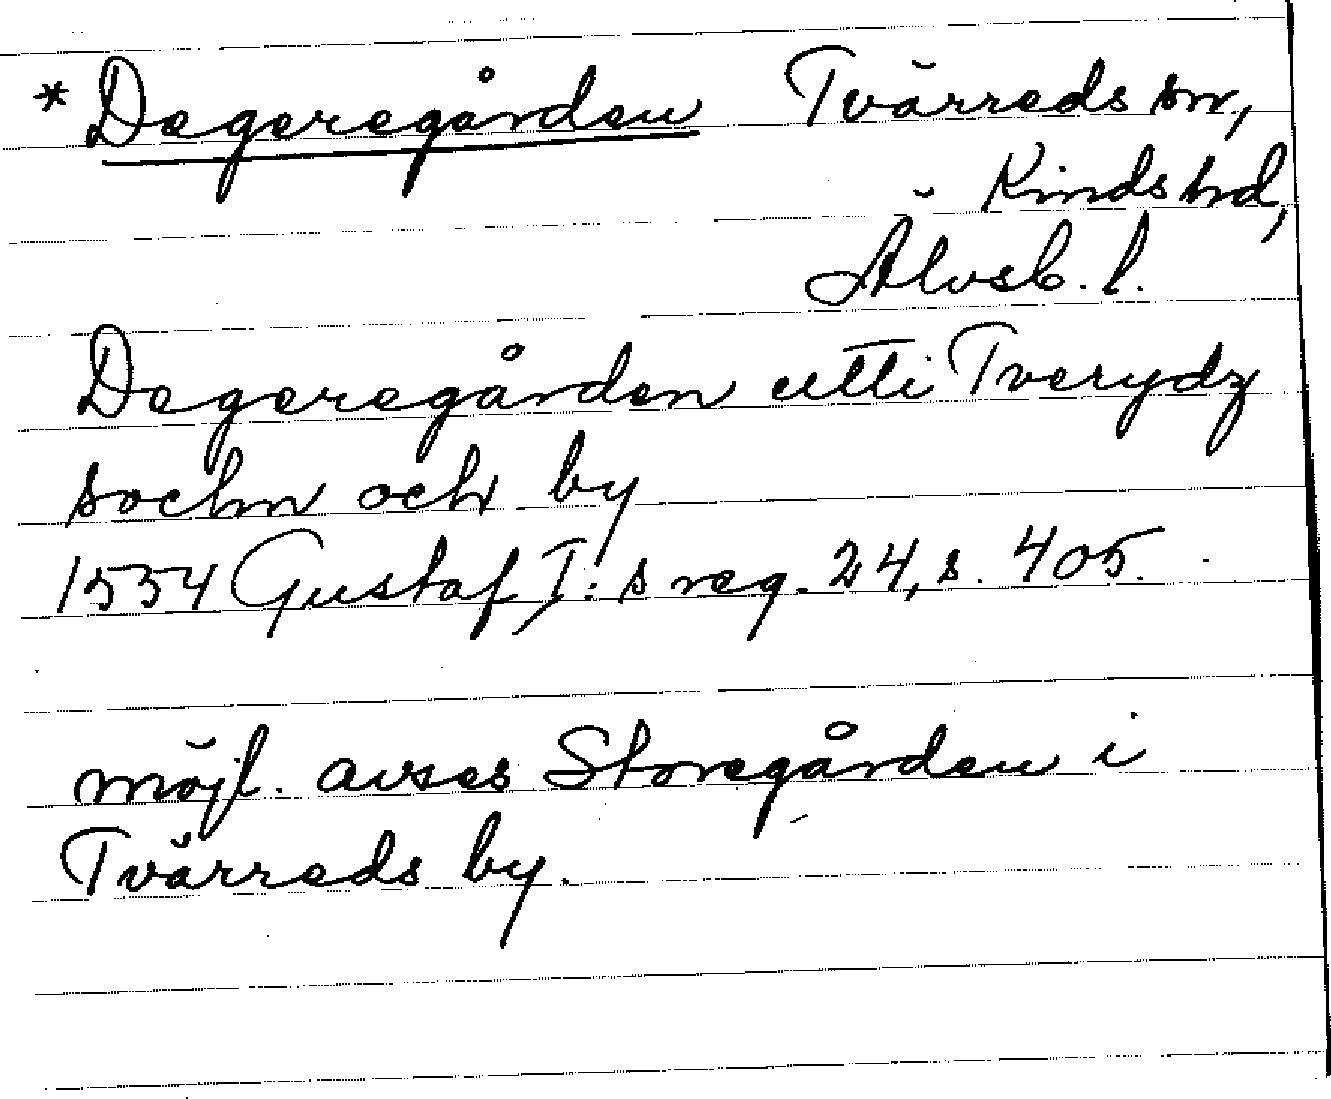 * Degeregården Tvärreds sn,
Kinds hd,
Älvsb. l.
Degeregården utti Tverydz
sochn och by
1554 Gustaf I:s reg. 24, s. 405.
möjl. avses Storegården i
Tvärreds by.